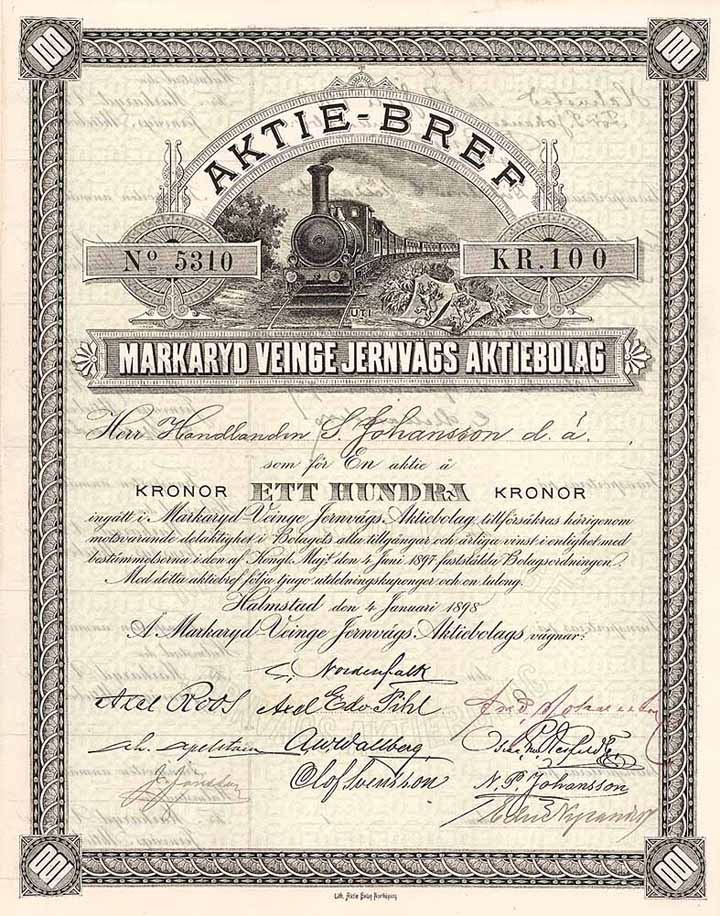 100 100
AKTIE-BREF
No 5310 KR. 100
MARKARYD VEINGE JERNVÄGS AKTIEBOLAG
Herr Handlanden S. Johansson d. ä.
som för En aktie å
KRONOR ETT HUNDRA KRONOR
ingått i Markaryd-Veinge Jernvägs-Aktiebolag, tillförsäkras härigenom
motsvarande delaktighet i Bolagets alla tillgångar och årliga vinst i enlighet med
bestämmelserna i den af Kongl. Maj:t den 4 Juni 1897 fastställda Bolagsordningen.
Med detta aktiebref följa tjugo utdelningskuponger och en talong.
Halmstad den 4 Januari 1898
Å Markaryd-Veinge Jernvägs-Aktiebolags vägnar:
Nordenfalk
Axel Roos Axel Edv Pihl
A Wallberg
Olof Svensson N. P. Johansson
100 100
Lith. Aktie Bolag Norrköping